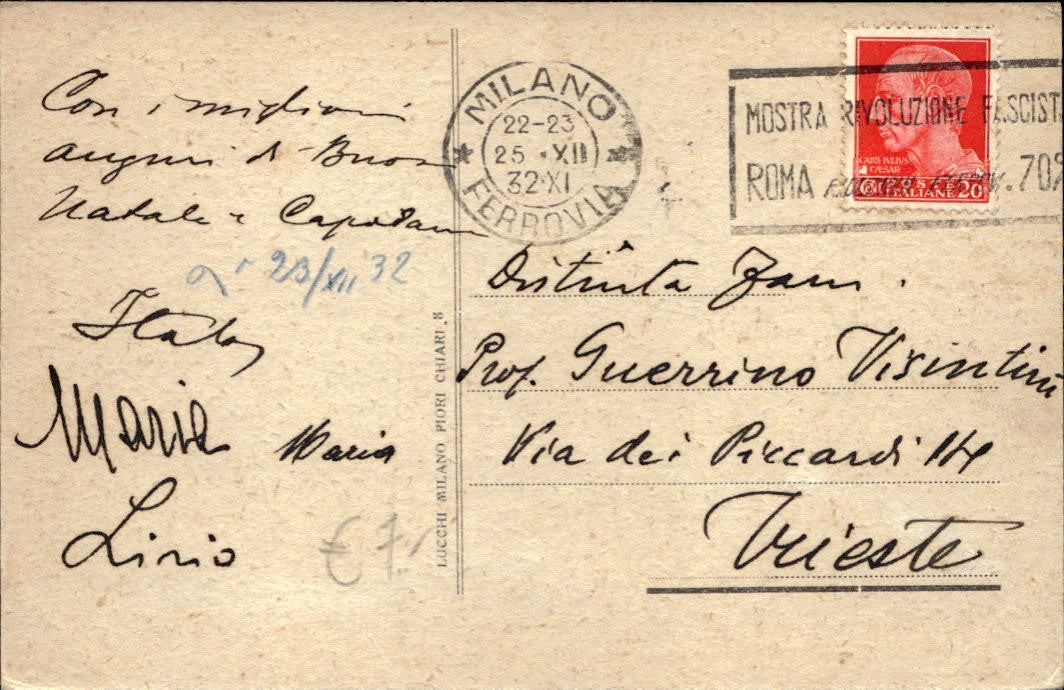 Con i migliori
auguri di Buon
Natale e Capodanno
23/XII 32
Italo
Maria Maria
Livio
€ 7
LUCCHI MILANO FIORI CHIARI 8
MILANO
22-23
25 · XII
32·XI
FERROVIA
MOSTRA RIVOLUZIONE FASCISTA
ROMA 70%
CAIVS·IVLIVS
CÆSAR
POSTE
ITALIANE 20
Distinta Fam.
Prof. Guerrino Visintini
Via dei Piccardi
Trieste